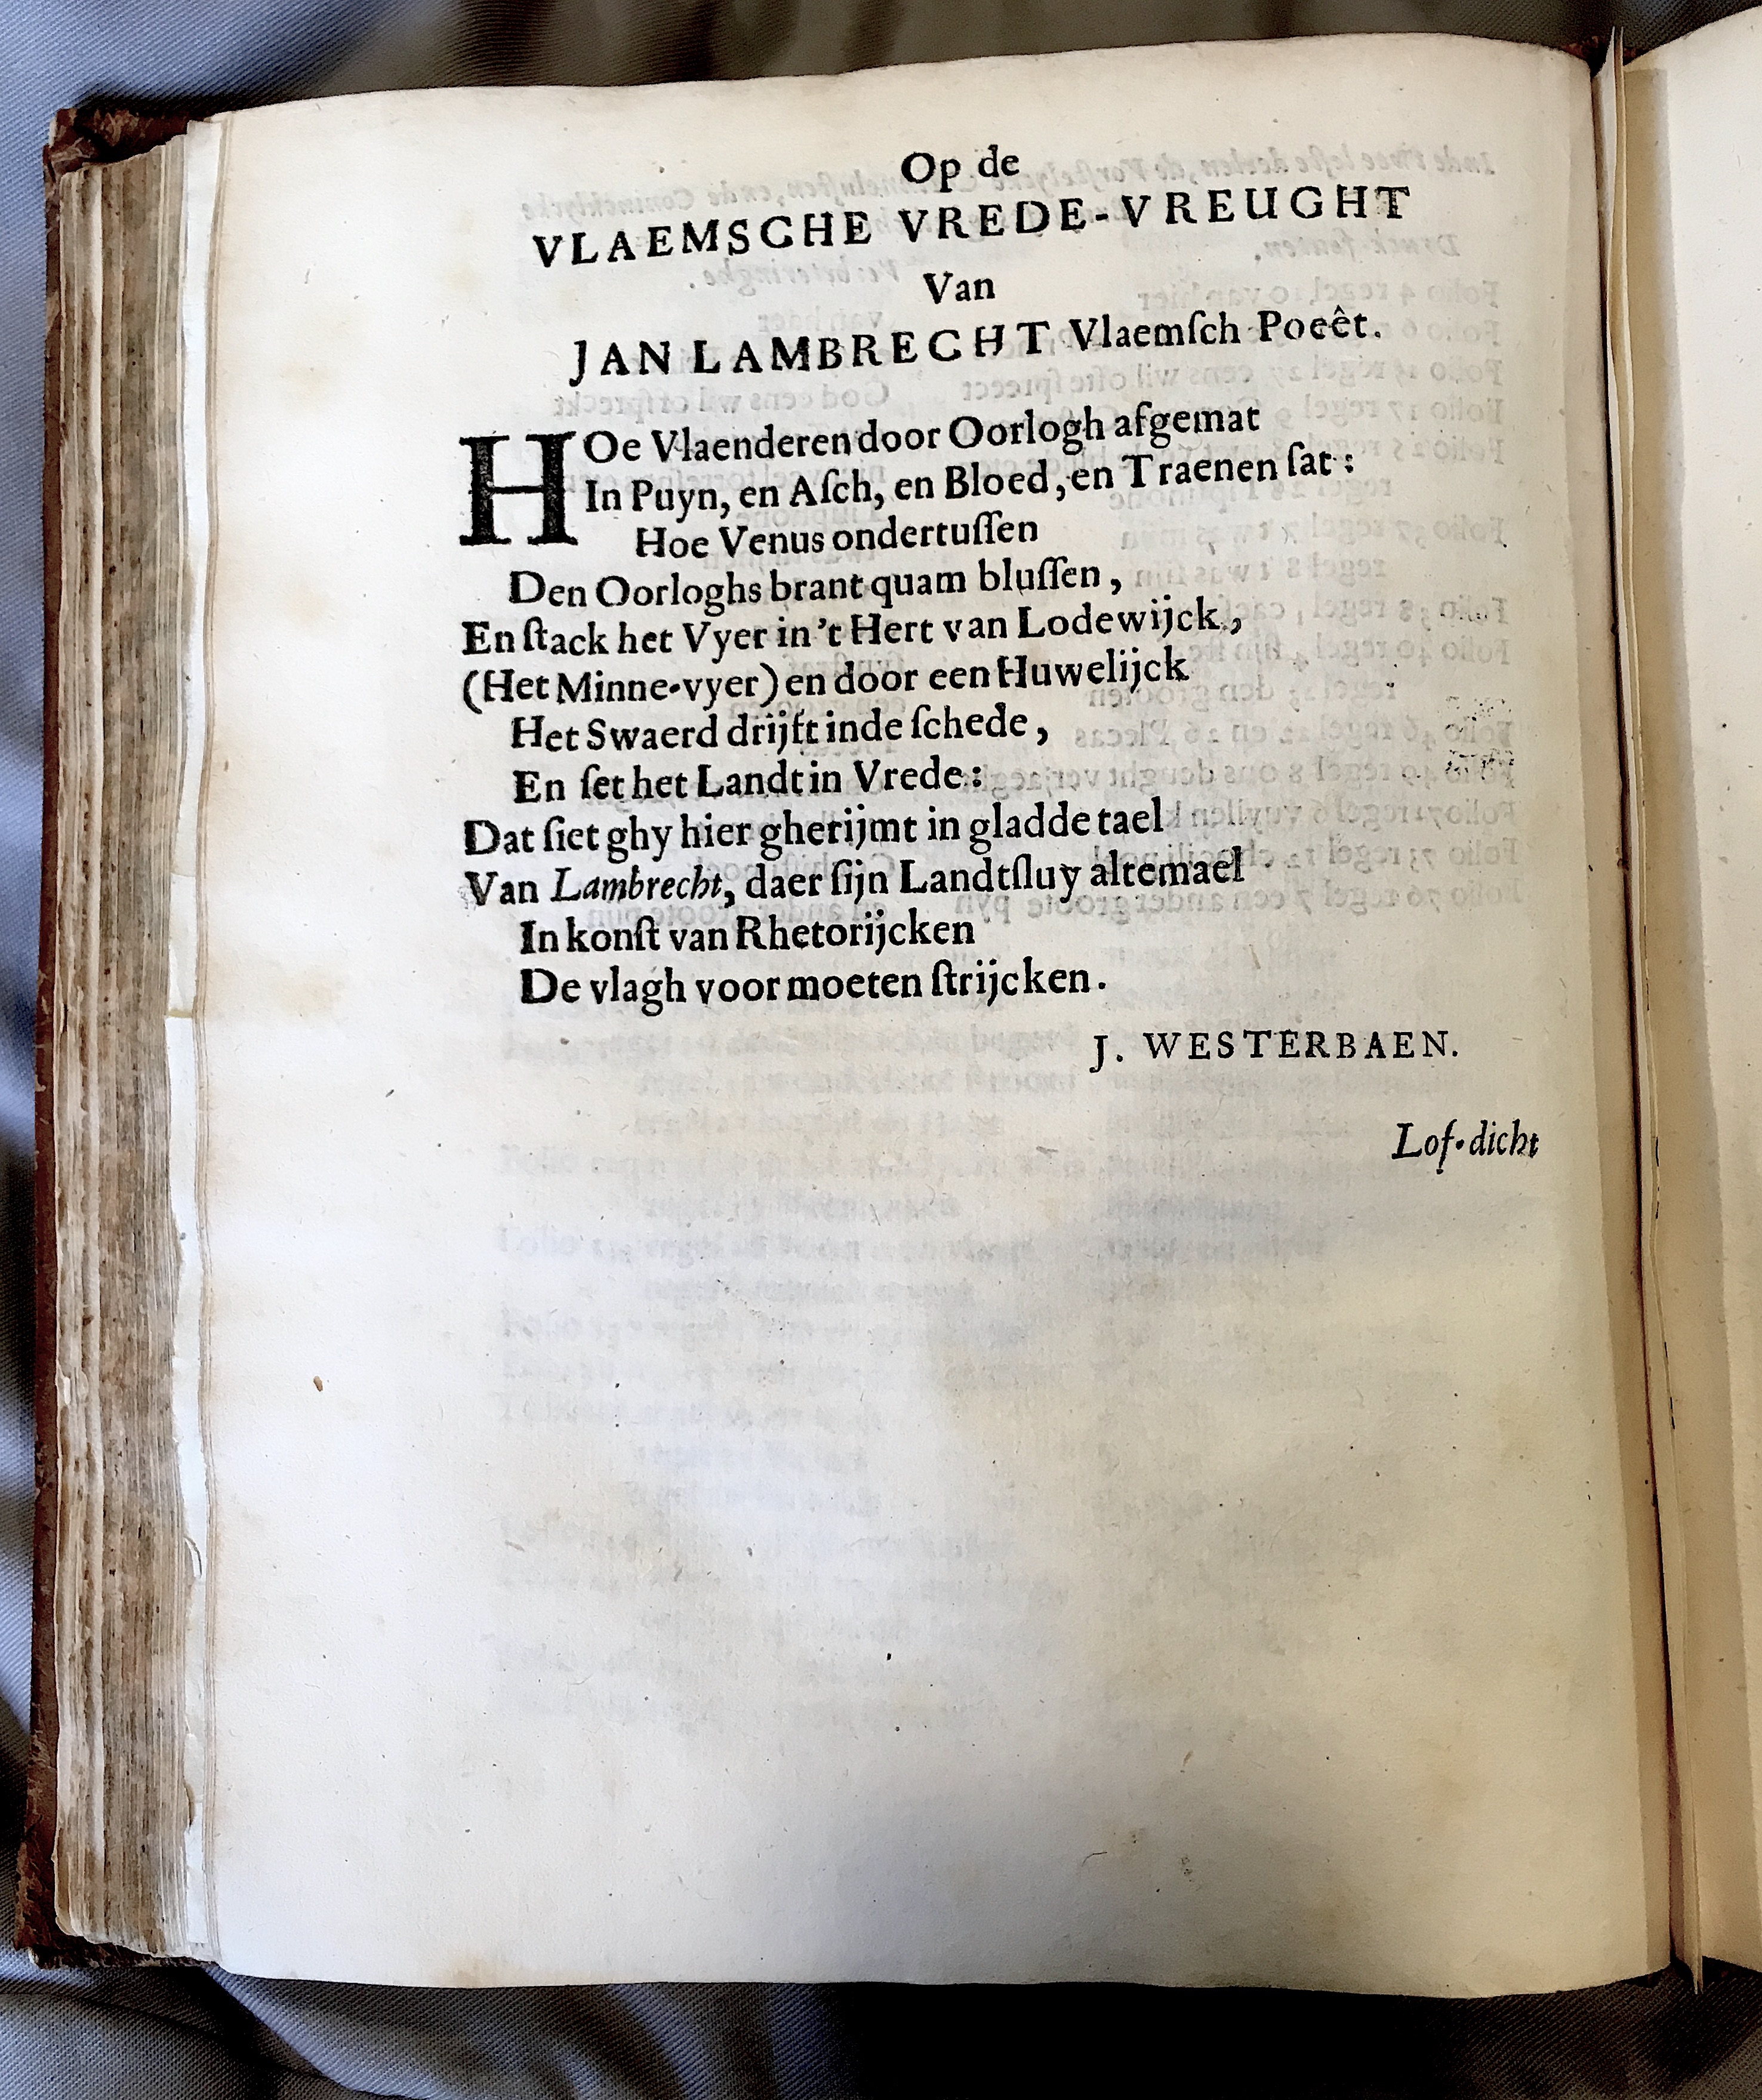 Op de
VLAEMSCHE VREDE-VREUGHT
Van
JAN LAMBRECHT Vlaemſch Poeêt.
HOe Vlaenderen door Oorlogh afgemat
In Puyn, en Aſch, en Bloed, en Traenen ſat:
Hoe Venus ondertuſſen
Den Oorloghs brant quam bluſſen,
En ſtack het Vyer in 't Hert van Lodewijck,
(Het Minne-vyer) en door een Huwelijck
Het Swaerd drijft inde ſchede,
En ſet het Landt in Vrede:
Dat ſiet ghy hier gherijmt in gladde tael
Van Lambrecht, daer ſijn Landtſluy altemael
In konſt van Rhetorijcken
De vlagh voor moeten ſtrijcken.
J. WESTERBAEN.
Lof-dicht